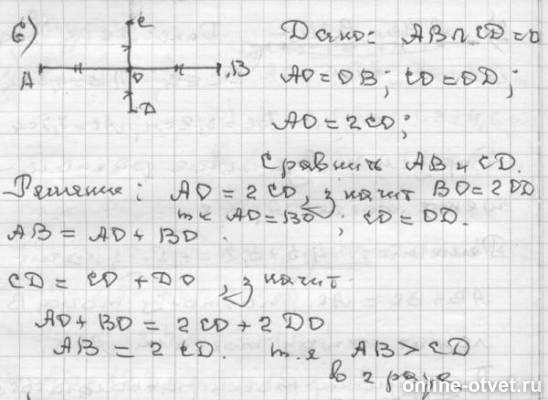 б)
C
A
O
B
D
Дано: AB ∩ CD = O
AO = OB; CO = OD;
AO = 2CO;
Сравнить AB и CD.
Решение: AO = 2CO, значит BO = 2OD
т.к AO = BO; CO = OD.
AB = AO + BO
CD = CO + DO, значит
AO + BO = 2CO + 2DO
AB = 2CD. т.е AB > CD
в 2 раза
online-otvet.ru